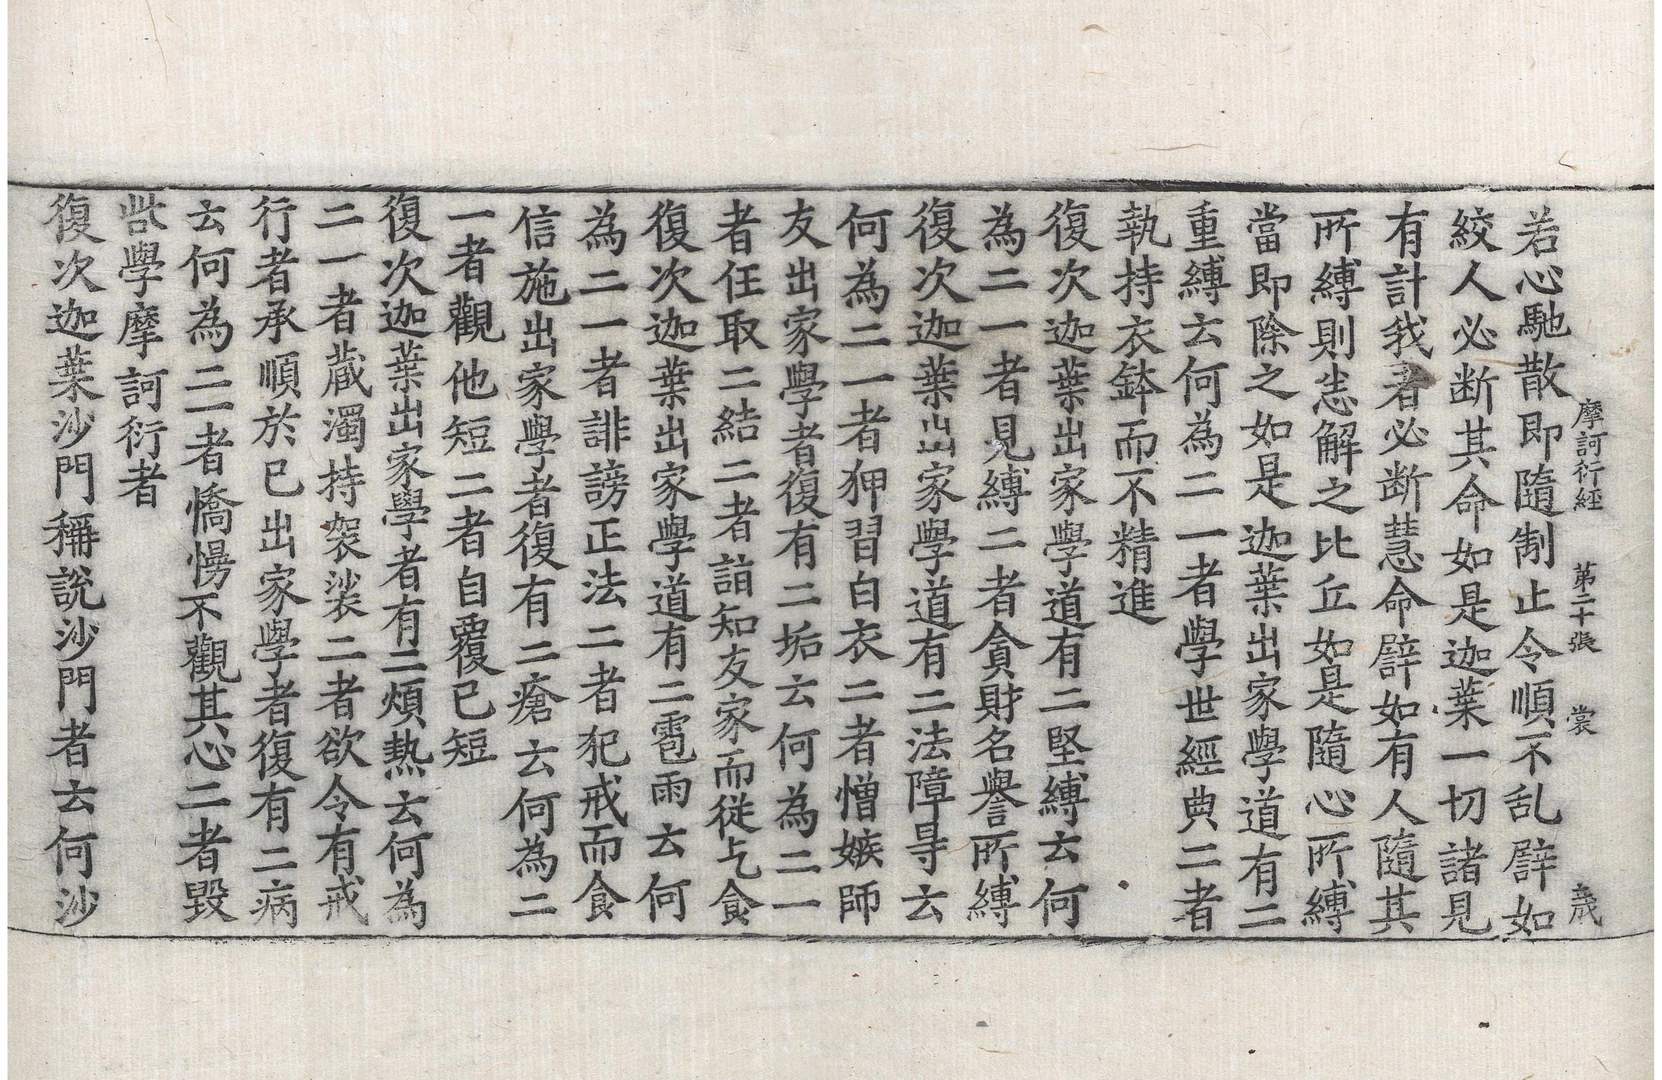 摩訶衍經 第二十張 裳 歳
若心馳散即隨制止令順不乱譬如
絞人必断其命如是迦葉一切諸見
有計我者必断慧命譬如有人隨其
所縛則恙解之比丘如是隨心所縛
當即除之如是迦葉出家學道有二
重縛云何為二一者學世經典二者
執持衣鉢而不精進
復次迦葉出家學道有二堅縛云何
為二一者見縛二者貪財名譽所縛
復次迦葉出家學道有二法障㝵云
何為二一者狎習白衣二者憎嫉師
友出家學者復有二垢云何為二一
者任取二結二者詣知友家而從乞食
復次迦葉出家學道有二雹雨云何
為二一者誹謗正法二者犯戒而食
信施出家學者復有二瘡云何為二
一者觀他短二者自覆已短
復次迦葉出家學者有二煩熱云何為
二一者蔵濁持袈裟二者欲令有戒
行者承順於已出家學者復有二病
云何為二一者憍慢不觀其心二者毀
呰學摩訶衍者
復次迦葉沙門稱說沙門者云何沙